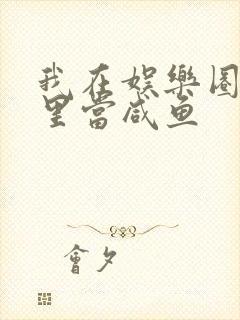 我在娱樂圈
里當咸鱼
會夕